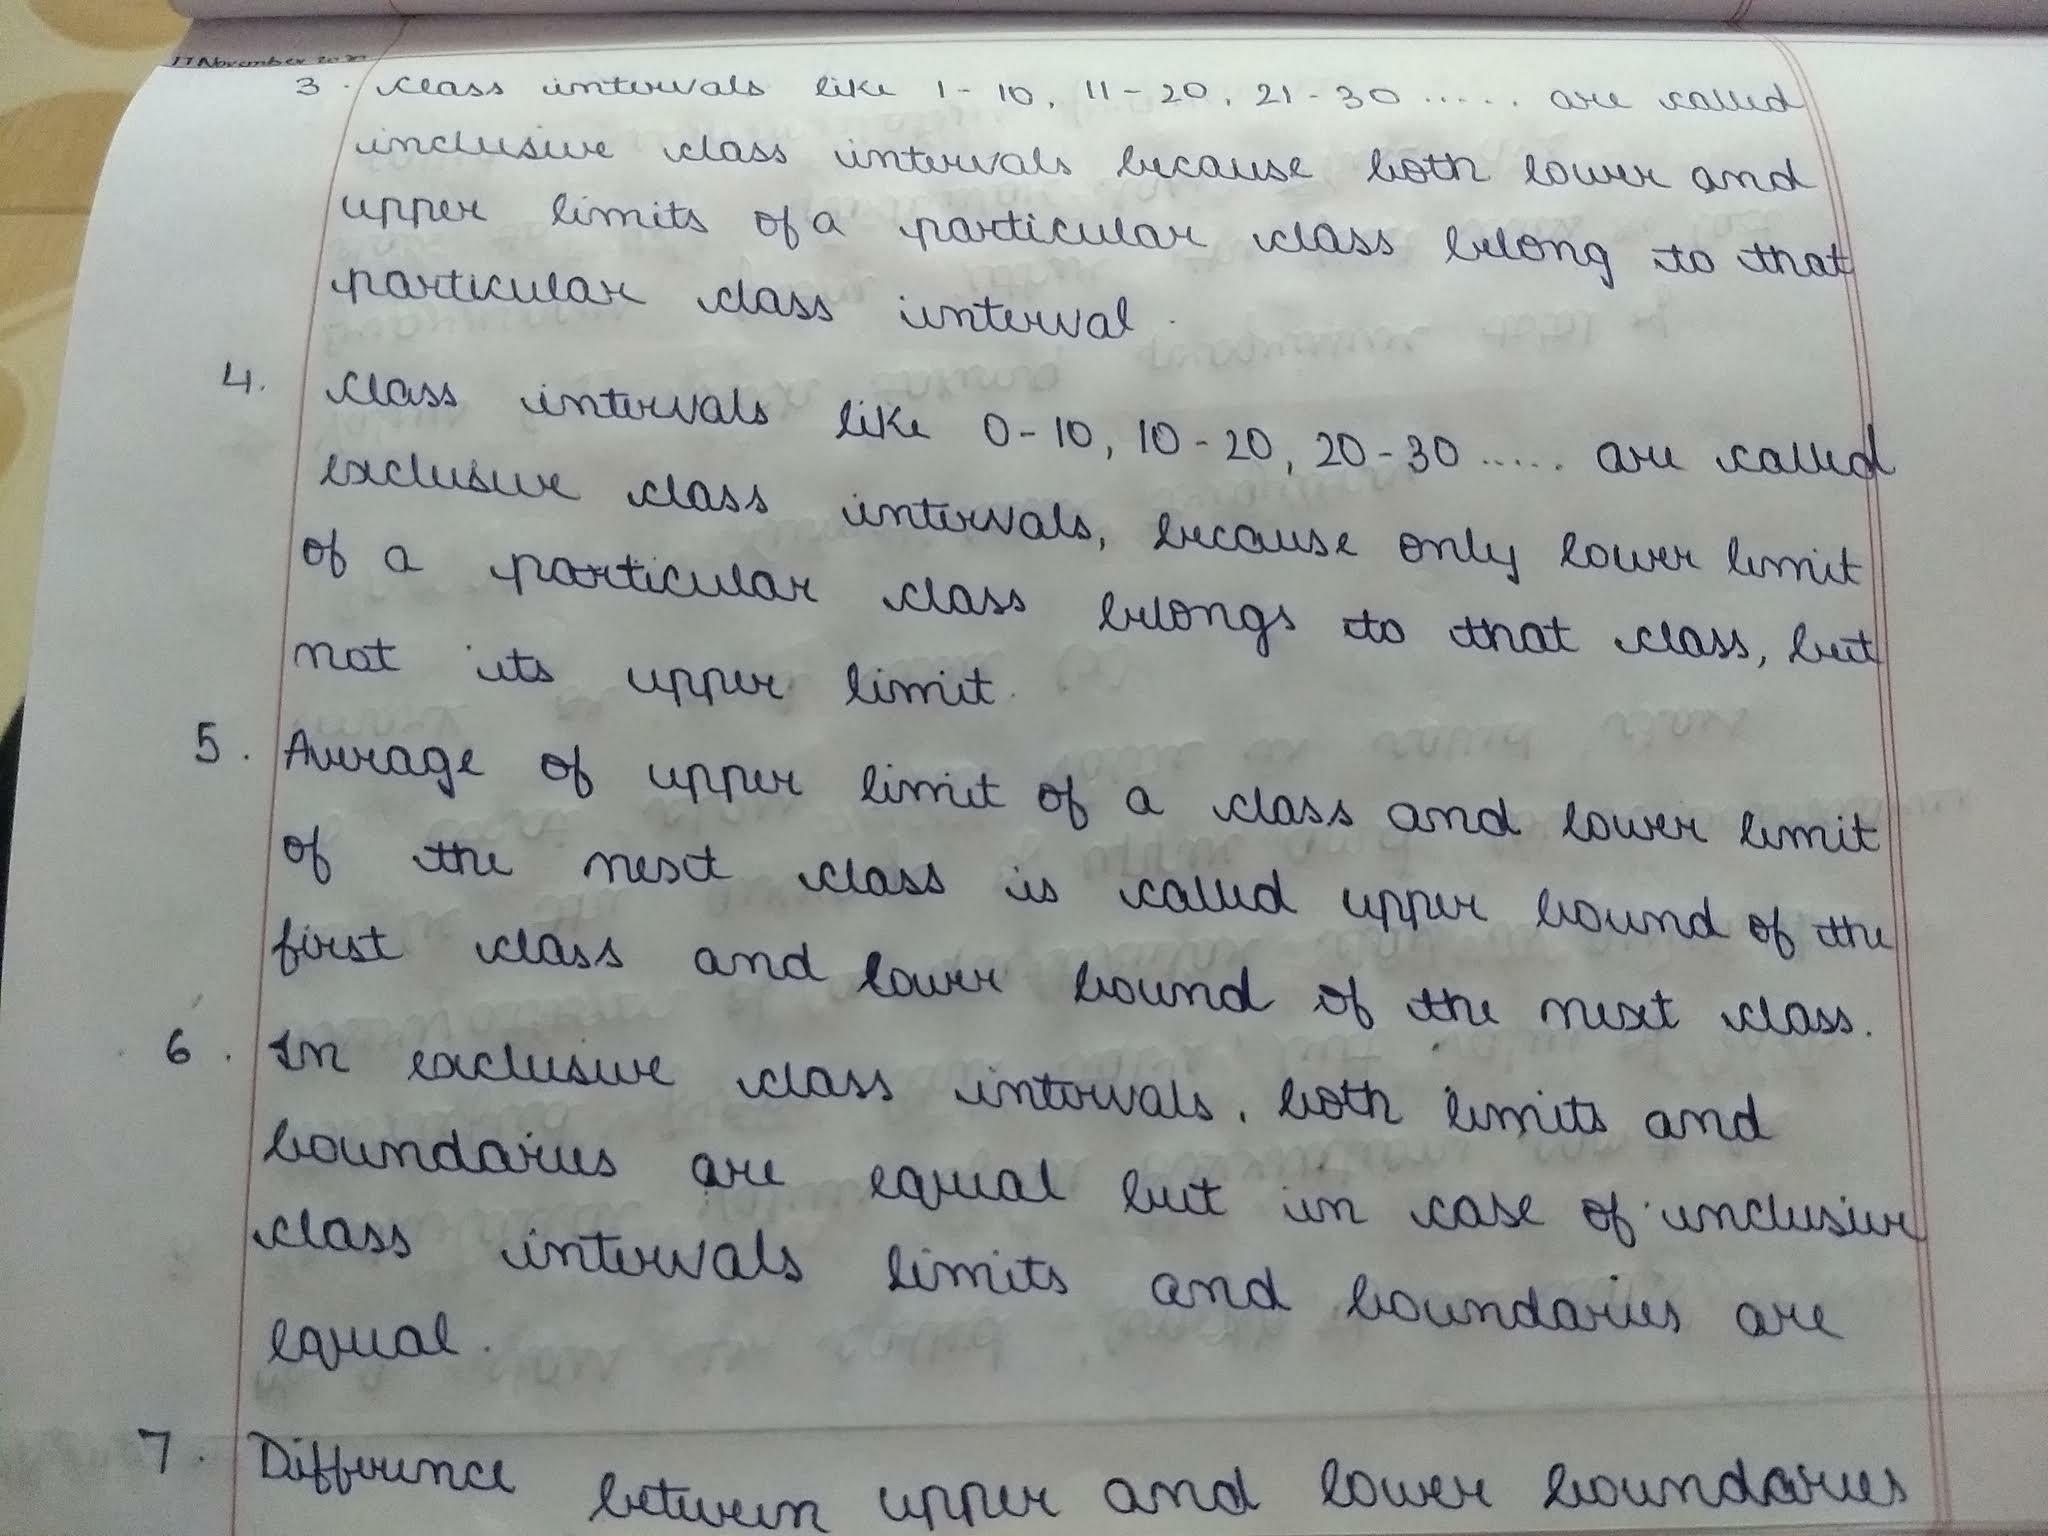 17 November 20
3. class intervals like 1-10, 11-20, 21-30 ..... are called
inclusive class intervals because both lower and
upper limits of a particular class belong to that
particular class interval.
4. class intervals like 0-10, 10-20, 20-30 ..... are called
exclusive class intervals, because only lower limit
of a particular class belongs to that class, but
not its upper limit.
5. Average of upper limit of a class and lower limit
of the next class is called upper bound of the
first class and lower bound of the next class.
6. In exclusive class intervals, both limits and
boundaries are equal but in case of inclusive
class intervals limits and boundaries are
equal.
7. Difference between upper and lower boundaries